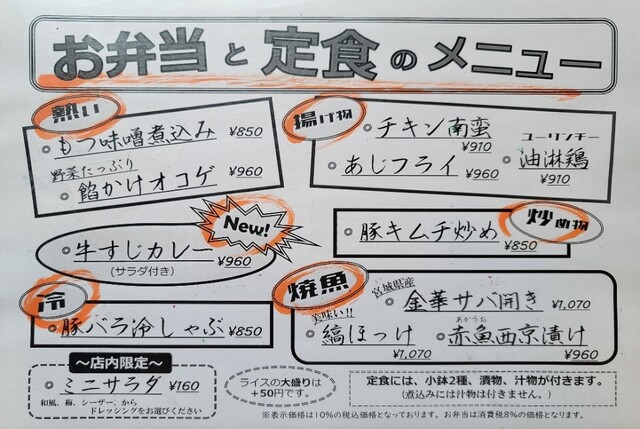 お弁当と定食のメニュー
熱い
もつ味噌煮込み ¥850
野菜たっぷり
餡かけオコゲ ¥960
揚げ物
チキン南蛮 ¥910
あじフライ ¥960
ユーリンチー
油淋鶏 ¥910
New!
牛すじカレー ¥960
(サラダ付き)
炒め物
豚キムチ炒め ¥850
冷
豚バラ冷しゃぶ ¥850
焼魚
宮城県産
金華サバ開き ¥1,070
美味い!!
縞ほっけ ¥1,070
あかうお
赤魚西京漬け ¥960
〜店内限定〜
ミニサラダ ¥160
和風、梅、シーザー、から
ドレッシングをお選びください
ライスの大盛りは
+50円です。
定食には、小鉢2種、漬物、汁物が付きます。
(煮込みには汁物は付きません。)
※表示価格は10%の税込価格となっております。お弁当は消費税8%の価格となります。